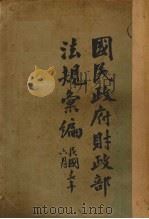 國民政府財政部
法規彙編
民國十七年
六月